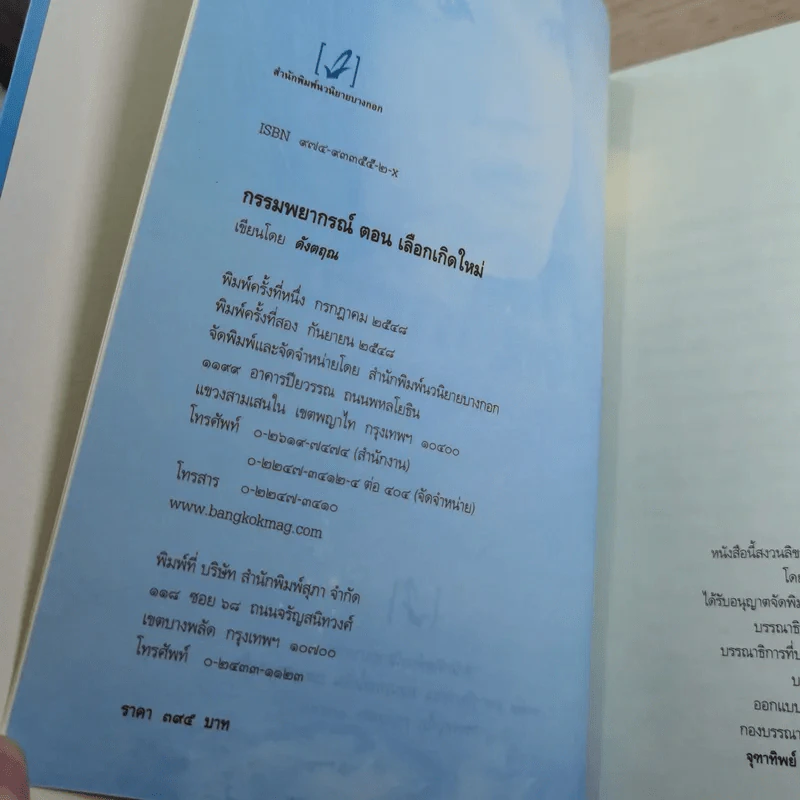 สำนักพิมพ์นวนิยายบางกอก
ISBN ๙๗๔-๙๓๓๕๕-๒-x
กรรมพยากรณ์ ตอน เลือกเกิดใหม่
เขียนโดย ดังตฤณ
พิมพ์ครั้งที่หนึ่ง กรกฎาคม ๒๕๔๘
พิมพ์ครั้งที่สอง กันยายน ๒๕๔๘
จัดพิมพ์และจัดจำหน่ายโดย สำนักพิมพ์นวนิยายบางกอก
๑๑๙๙ อาคารปิยวรรณ ถนนพหลโยธิน
แขวงสามเสนใน เขตพญาไท กรุงเทพฯ ๑๐๔๐๐
โทรศัพท์ ๐-๒๖๑๙-๗๔๗๔ (สำนักงาน)
๐-๒๒๔๗-๓๔๑๒-๔ ต่อ ๔๐๔ (จัดจำหน่าย)
โทรสาร ๐-๒๒๔๗-๓๔๑๐
www.bangkokmag.com
พิมพ์ที่ บริษัท สำนักพิมพ์สุภา จำกัด
๑๑๘ ซอย ๖๘ ถนนจรัญสนิทวงศ์
เขตบางพลัด กรุงเทพฯ ๑๐๗๐๐
โทรศัพท์ ๐-๒๔๓๓-๑๑๒๓
ราคา ๓๙๕ บาท
หนังสือนี้สงวนลิข
โดย
ได้รับอนุญาตจัดพิม
บรรณาธิ
บรรณาธิการที่ป
บ
ออกแบบ
กองบรรณา
จุฑาทิพย์